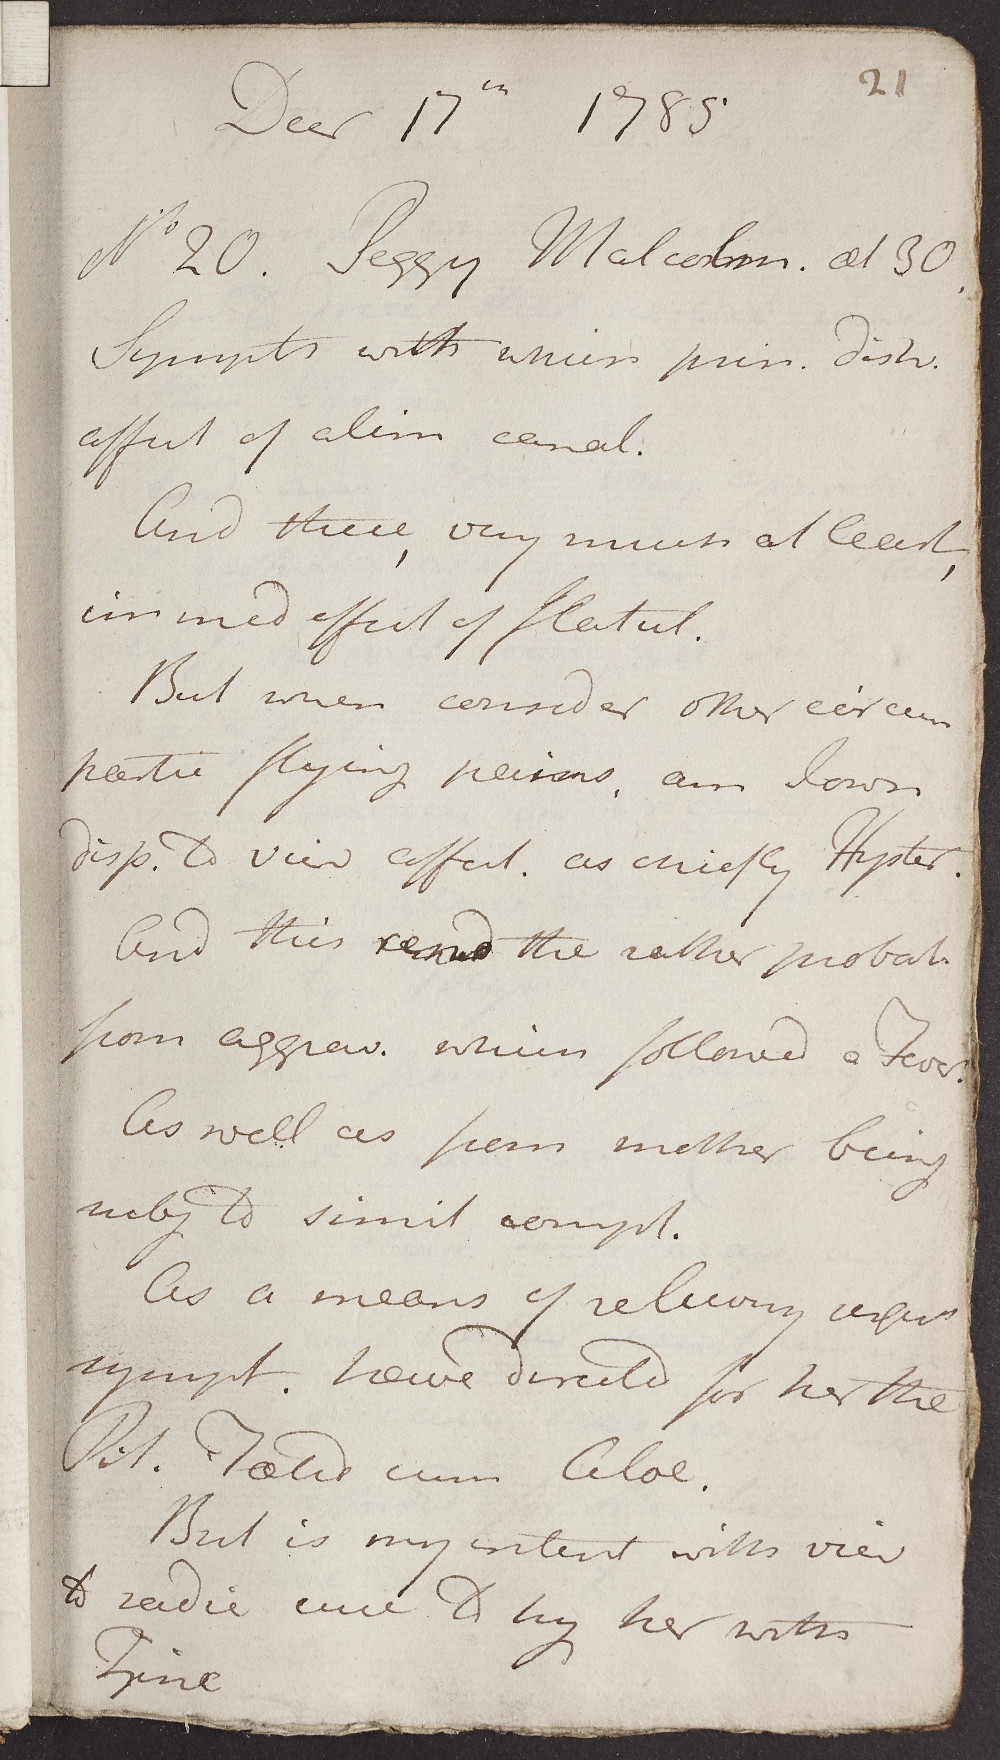 21
Decr 17th 1785
No 20. Peggy Malcolm. æt 30.
Sympts with which prin. distr.
affect of alim canal.
And these, very much at least,
immed effect of flatul.
But when consider other circum
partic flying pains, am I own
disp. to view affect. as chiefly Hyster.
And this rend the rather probab.
from aggrav. which followed a Fever.
As well as from mother being
subj to simil compl.
As a means of relieving urgent
sympt. have directed for her the
Pil. Fœtid cum Aloe.
But is my intent with view
to radic cure to try her with